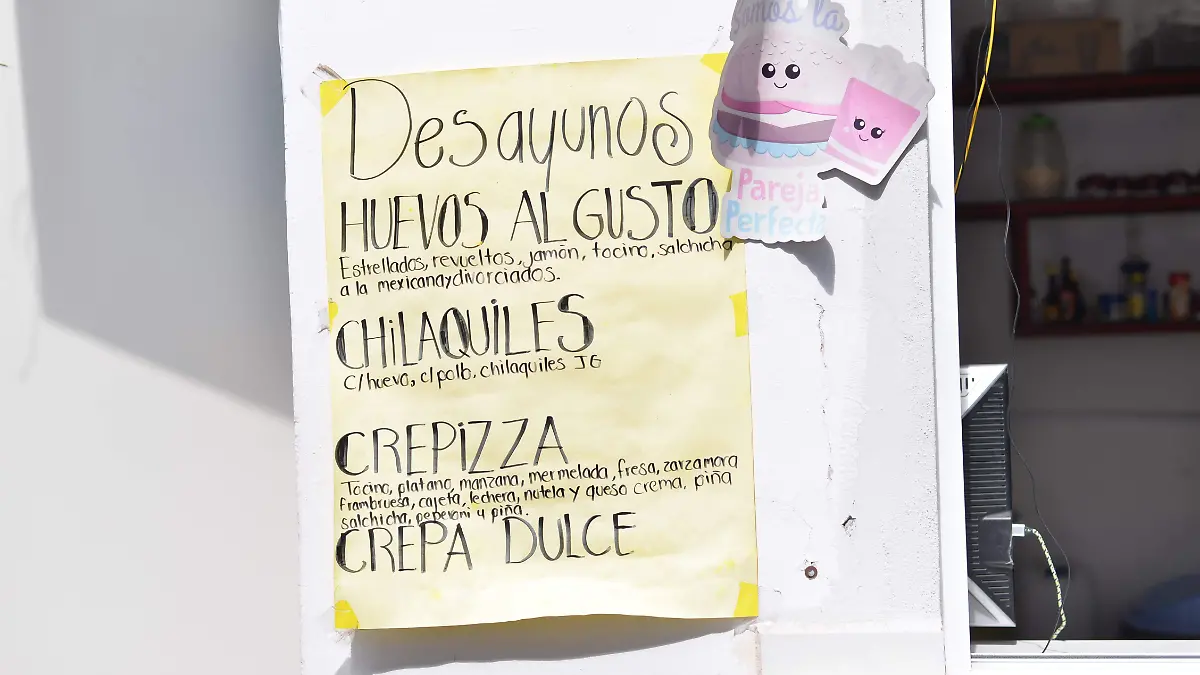 Somos la
Pareja
Perfecta
Desayunos
HUEVOS AL GUSTO
Estrellados, revueltos, jamón, tocino, salchicha
a la mexicana y divorciados.
CHiLAQUiLES
c/huevo, c/pollo, chilaquiles JG
CREPiZZA
Tocino, platano, manzana, mermelada, fresa, zarzamora
frambruesa, cajeta, lechera, nutela y queso crema, piña
salchicha, peperoni y piña.
CREPA DULCE